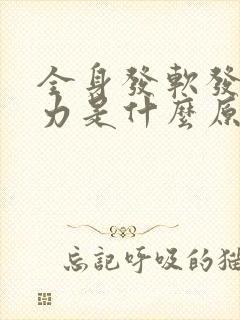 全身發軟發
力是什麼原
忘記呼吸的猫